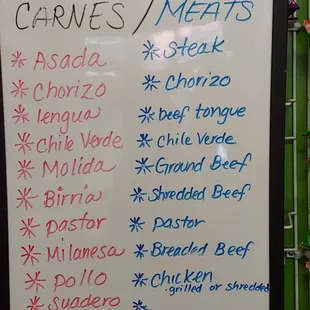 CARNES / MEATS
* Asada * Steak
* Chorizo * Chorizo
* lengua * beef tongue
* Chile Verde * Chile Verde
* Molida * Ground Beef
* Birria * Shredded Beef
* pastor * Pastor
* Milanesa * Breaded Beef
* pollo * Chicken
grilled or shredded
* Suadero *